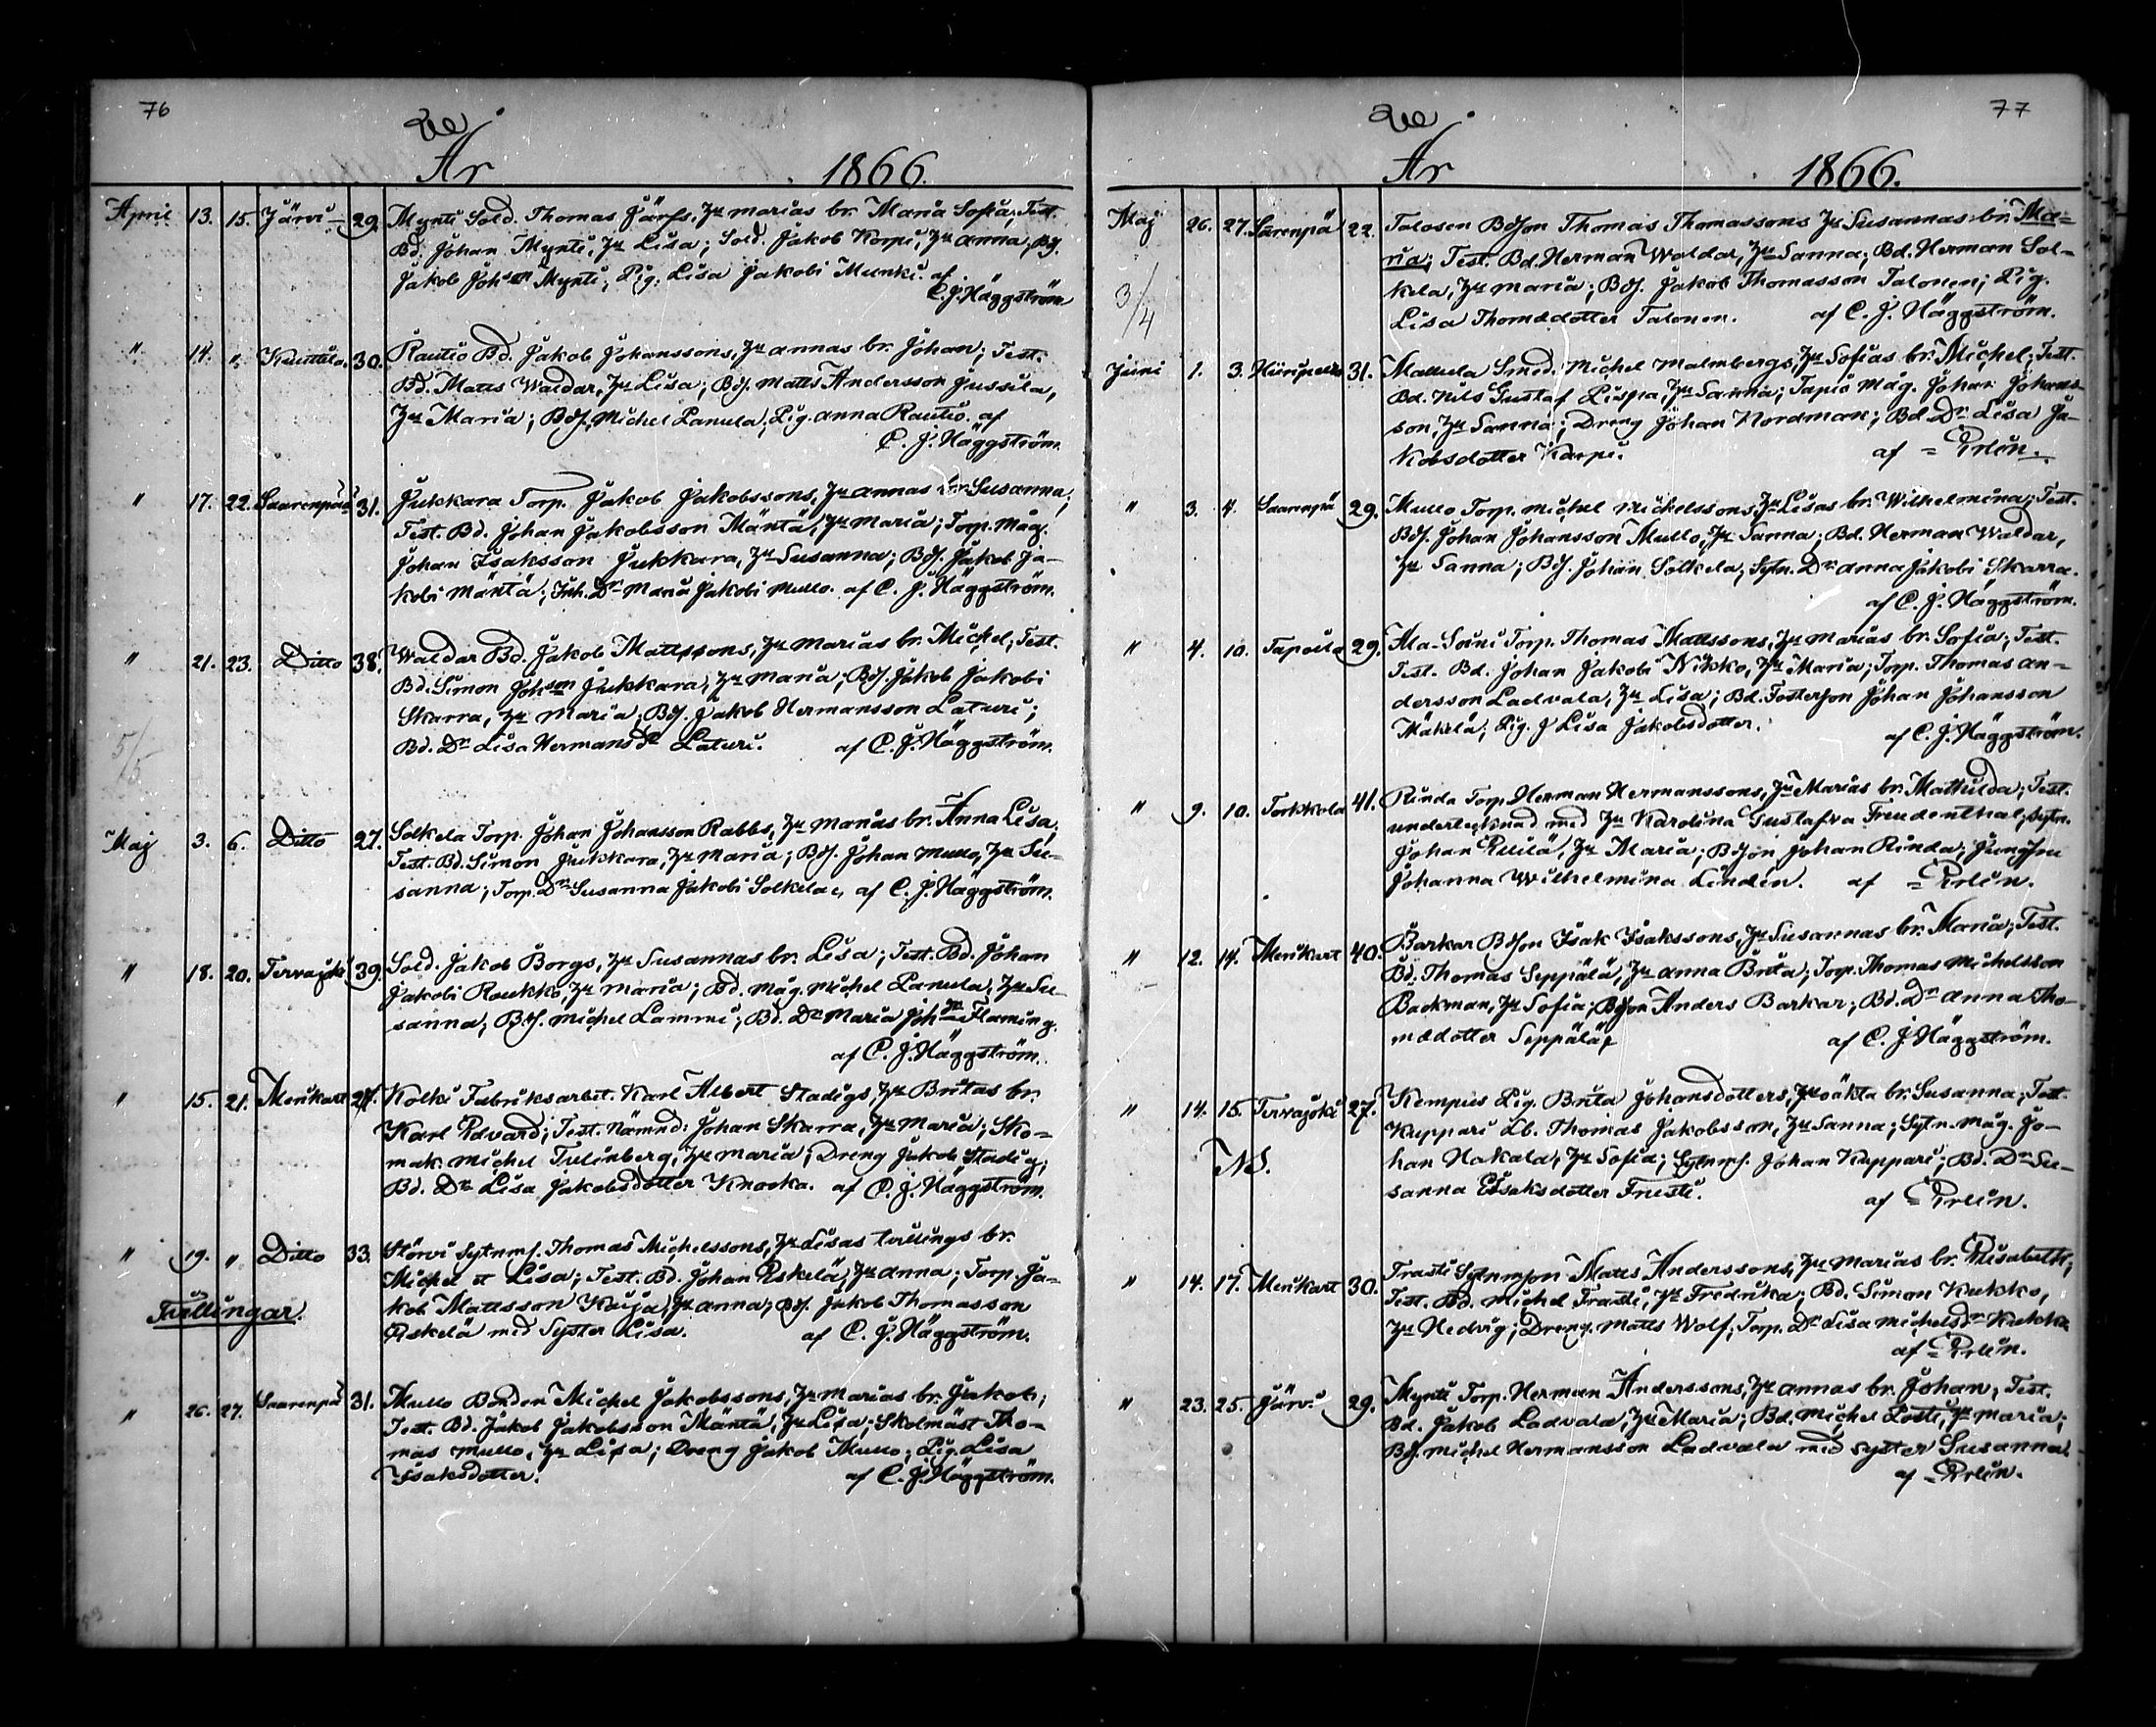 76
År 1866.
April 13. 15. Järvi 29. Mynti Sold. Thomas Järfs, Hu Marias br. Maria Sofia; Test.
Bd. Johan Mynti, Hu Lisa; Sold. Jakob Korpi, Hu Anna; BdS.
Jakob Johson Mynti; Pig. Lisa Jakobi Munki. af
C. J. Häggström
" 14. " 30. Rautio Bd. Jakob Johanssons, Hu Annas br. Johan; Test.
Bd. Matts Waldar, Hu Lisa; BdS. Matts Andersson Jussila,
Hu Maria; BdS. Michel Panula; Pig. Anna Rautio. af
C. J. Häggström.
" 17. 22. Saarenpää 31. Jukkara Torp. Jakob Jakobssons, Hu Annas br. Susanna;
Test. Bd. Johan Jakobsson Mäntä, Hu Maria; Torp. Måg.
Johan Isaksson Jukkara, Hu Susanna; BdS. Jakob Ja-
kobi Mäntä; Inh. Dr Maria Jakobi Mullo. af C. J. Häggström.
" 21. 23. Ditto 38. Waldar Bd. Jakob Mattssons, Hu Marias br. Michel; Test.
Bd. Simon Johson Jukkara, Hu Maria; BdS. Jakob Jakobi
Skarra, Hu Maria; BdS. Jakob Hermansson Laturi;
Bd. Dr Lisa Hermansdr Laturi. af C. J. Häggström.
5/5
Maj 3. 6. Ditto 27. Solkela Torp. Johan Johansson Rabbs, Hu Marias br. Anna Lisa;
Test. Bd. Simon Jukkara, Hu Maria; BdS. Johan Mullo, Hu Su-
sanna; Torp. Dr Susanna Jakobi Solkela, af C. J. Häggström.
" 18. 20. Tervajoki 39. Sold. Jakob Borgs, Hu Susannas br. Lisa; Test. Bd. Johan
Jakobi Roukko, Hu Maria; Bd. Måg. Michel Panula, Hu Su-
sanna; BdS. Michel Lammi; Bd. Dr Maria Joh Flaming.
af C. J. Häggström.
" 15. 21. Merikart 27. Kolki Fabriksarbet. Karl Albert Stadigs, Hu Britas br.
Karl Edvard; Test. Nämnd: Johan Skarra, Hu Maria; Sko-
mak. Michel Tulinberg, Hu Maria; Dreng Jakob Stadig;
Bd. Dr Lisa Jakobsdotter Knocka. af C. J. Häggström.
" 19. " Ditto 33. Störvi Sytnmf. Thomas Michelssons, Hu Lisas tvillings br.
Tvillingar.
Michel et Lisa; Test. Bd. Johan Eskelä, Hu Anna; Torp. Ja-
kob Mattsson Kaija, Hu Anna; BdS. Jakob Thomasson
Eskelä med Syster Lisa. af C. J. Häggström.
" 26. 27. Saarenpä 31. Mullo Bonden Michel Jakobssons, Hu Marias br. Jakob;
Test. Bd. Jakob Jakobsson Mäntä, Hu Lisa; Skolmäst Tho-
mas Mullo, Hu Lisa; Dreng Jakob Mullo; Pig. Lisa
Isaksdotter. af C. J. Häggström.
77
År 1866.
Maj 26. 27. Sarenpä 22. Talosen BdSon Thomas Thomassons Hu Susannas br. Ma-
ria; Test. Bd. Herman Waldar, Hu Sanna; Bd. Herman Sol-
kela, Hu Maria; BdS. Jakob Thomasson Talonen; Pig.
Lisa Thomædotter Talonen. af C. J. Häggström.
3/4
Juni 1. 3. 31. Mattula Smed. Michel Malmbergs, Hu Sofias br. Michel; Test.
Bd. Nils Gustaf Pispa, Hu Sanna; Tapio Måg. Johan Johans-
son, Hu Sanna; Dreng Johan Nordman; Bd. Dr Lisa Ja-
kobsdotter Karpi. af = Erlin.
" 3. 4. Saarenpä 29. Mullo Torp. Michel Michelssons, Hu Lisas br. Wilhelmina; Test.
BdS. Johan Johansson Mullo, Hu Sanna; Bd. Herman Waldar,
Hu Sanna; BdS. Johan Solkela; Sytn. Dr Anna Jakobi Skarra.
af C. J. Häggström.
" 4. 10. Tapoila 29. Ala-Soini Torp. Thomas Mattssons, Hu Marias br. Sofia; Test.
Test. Bd. Johan Jakobi Nikko, Hu Maria; Torp. Thomas An-
dersson Ladvala, Hu Lisa; Bd. FosterSon Johan Johansson
Mäkelä; Pig. J Lisa Jakobsdotter. af C. J. Häggström.
" 9. 10. Torkkola 41. Rinda Torp. Herman Hermanssons, Hu Marias br. Mathilda; Test.
undertecknad med Hu Karolina Gustafva Freudenthal; Sytn.
Johan Ruilä, Hu Maria; BdSon Johan Rinda; Jungfru
Johanna Wilhelmina Lindén. af = Erlin.
" 12. 14. Merikart 40. Barkar BdSon Isak Isakssons, Hu Susannas br. Maria; Test.
Bd. Thomas Seppälä, Hu Anna Brita; Torp. Thomas Michelsson
Backman, Hu Sofia; BdSon Anders Barkar; Bd. Dr Anna Tho-
mædotter Seppälä, af C. J. Häggström.
" 14. 15. Tervajoki 27. Kempus Pig. Brita Johansdotters, Hu oäkta br. Susanna; Test.
NS.
Kuppari Lb. Thomas Jakobsson, Hu Sanna; Sytn. Måg. Jo-
han Hakala, Hu Sofia; Sytnmf. Johan Kuppari; Bd. Dr Su-
sanna Isaksdotter Frusti. af = Erlin.
" 14. 17. Merikart 30. Frasti Sytnmson Matts Anderssons, Hu Marias br. Elisabeth;
Test. Bd. Michel Frasti, Hu Fredrika; Bd. Simon Kukko,
Hu Hedvig; Dreng. Matts Wolf; Torp. Dr Lisa Michelsdr Kukko
af = Erlin.
" 23. 25. Järvi 29. Mynti Torp. Herman Anderssons, Hu Annas br. Johan; Test.
Bd. Jakob Ladvala, Hu Maria; Bd. Michel Losti, Hu Maria;
BdS. Michel Hermansson Ladvala med syster Susanna.
af = Erlin.